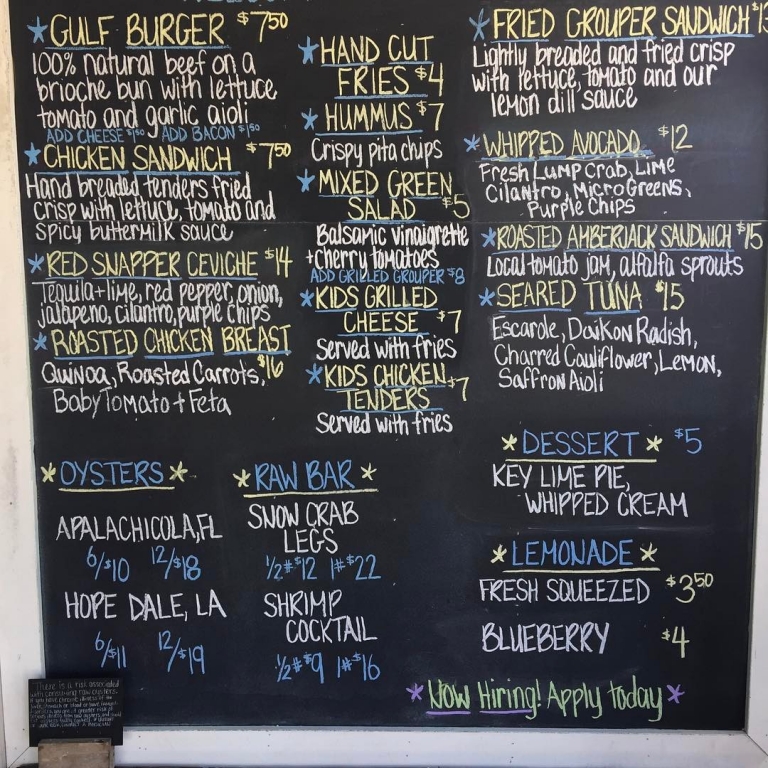 *GULF BURGER $7.50
100% natural beef on a
brioche bun with lettuce
tomato and garlic aioli
ADD CHEESE $1.50 ADD BACON $1.50
*CHICKEN SANDWICH $7.50
Hand breaded tenders fried
crisp with lettuce, tomato and
spicy buttermilk sauce
*RED SNAPPER CEVICHE $14
Tequila+lime, red pepper, onion,
jalapeno, cilantro, purple chips
*ROASTED CHICKEN BREAST
Quinoa, Roasted Carrots, $16
Baby Tomato + Feta
*HAND CUT
FRIES $4
*HUMMUS $7
Crispy pita chips
*MIXED GREEN
SALAD $5
Balsamic vinaigrette
+cherry tomatoes
ADD GRILLED GROUPER $8
*KIDS GRILLED
CHEESE $7
Served with fries
*KIDS CHICKEN
TENDERS $7
Served with fries
*FRIED GROUPER SANDWICH
Lightly breaded and fried crisp
with lettuce, tomato and our
lemon dill sauce
*WHIPPED AVOCADO $12
Fresh Lump crab, Lime
Cilantro, MicroGreens,
Purple Chips
*ROASTED AMBERJACK SANDWICH $15
Local tomato jam, alfalfa sprouts
*SEARED TUNA $15
Escarole, Daikon Radish,
Charred Cauliflower, Lemon,
Saffron Aioli
*OYSTERS*
APALACHICOLA, FL
6/$10 12/$18
HOPE DALE, LA
6/$11 12/$19
*RAW BAR*
SNOW CRAB
LEGS
1/2# $12 1# $22
SHRIMP
COCKTAIL
1/2# $9 1# $16
*DESSERT* $5
KEY LIME PIE,
WHIPPED CREAM
*LEMONADE*
FRESH SQUEEZED $3.50
BLUEBERRY $4
*Now Hiring! Apply today*
There is a risk associated
with consuming raw oysters.